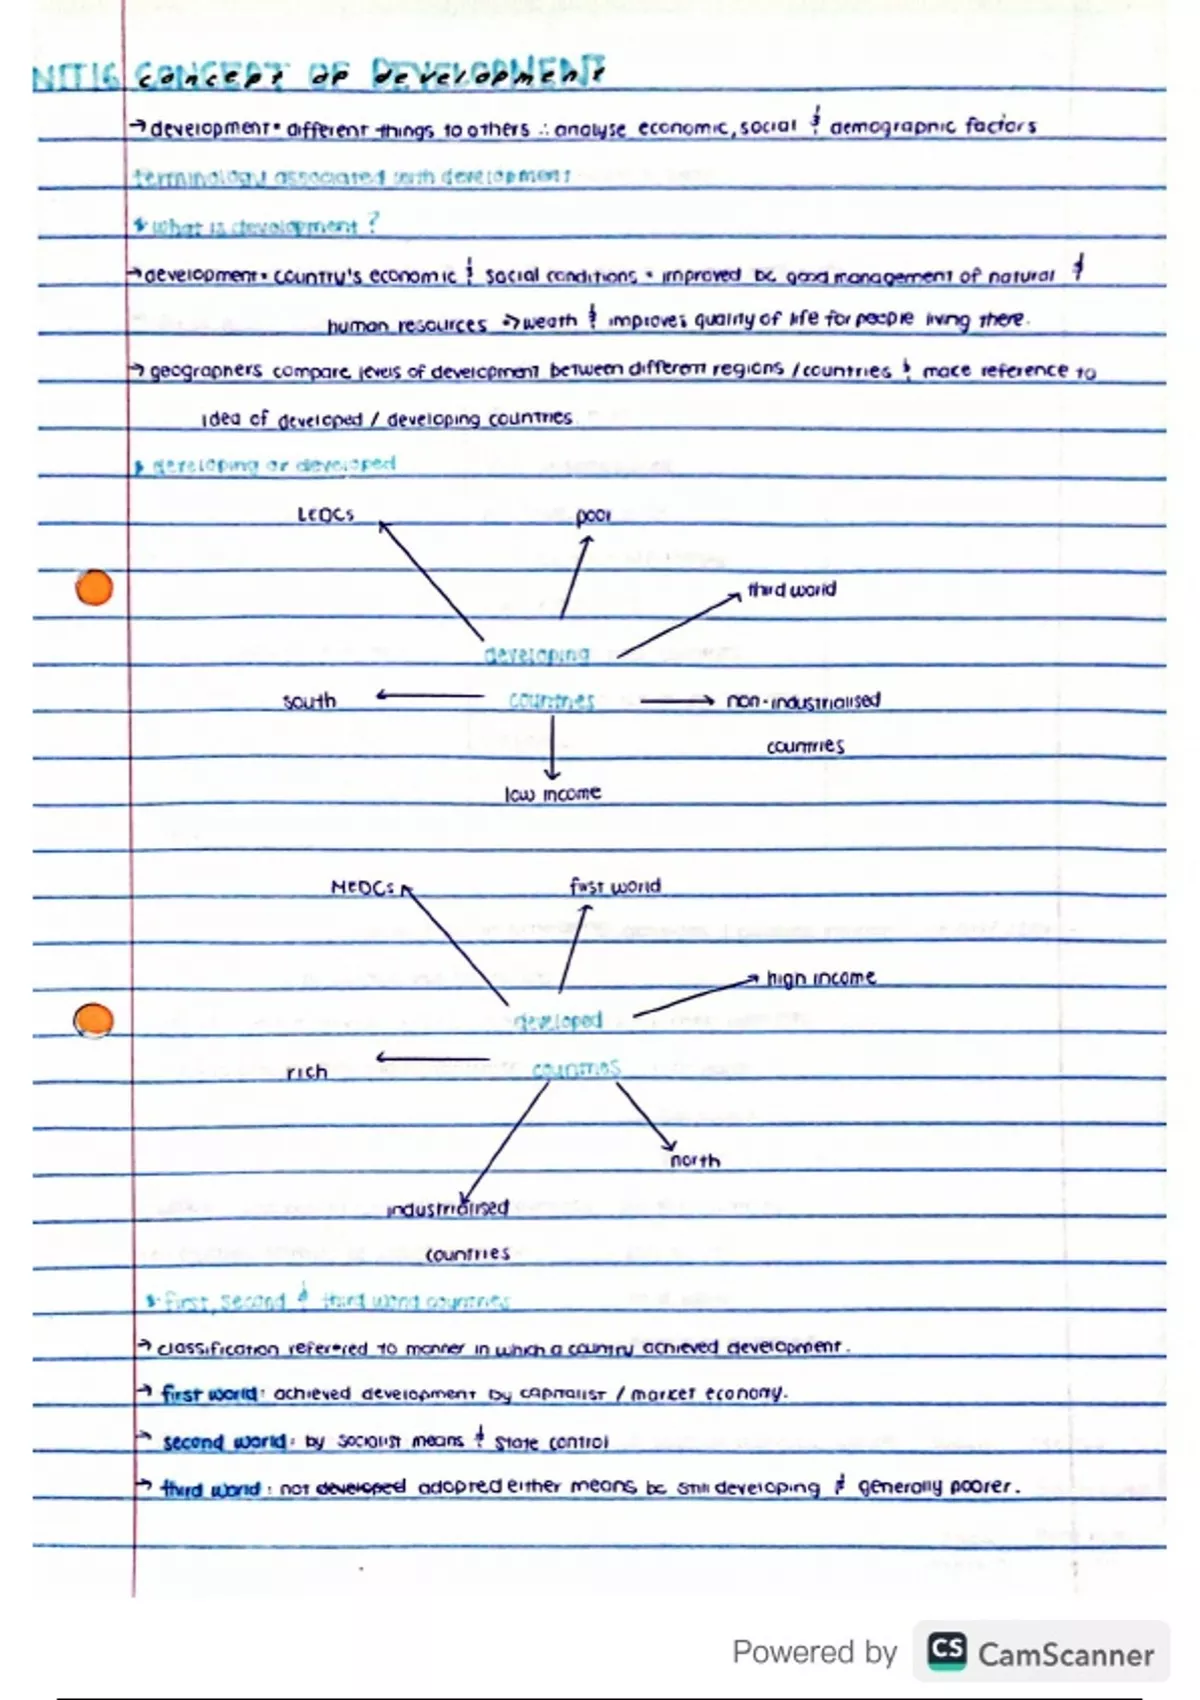 NIT16 CONCEPT OF DEVELOPMENT
→ development = different things to others ∴ analyse economic, social & demographic factors
terminology associated with development
* what is development?
→ development = country's economic & social conditions = improved bc good management of natural &
human resources → weath & improves quality of life for people living there.
→ geographers compare levels of development between different regions / countries & mace reference to
idea of developed / developing countries.
developing or developed
LEDCs
poor
third world
developing
south
countries
non-industrialised
countries
low income
MEDCs
first world
high income
developed
rich
countries
north
industrialised
countries
* first, second & third world countries
→ classification refer*red to manner in which a country achieved development.
→ first world: achieved development by capitalist / market economy.
→ second world: by socialist means & state control
→ third world: not developed adopted either means bc still developing & generally poorer.
Powered by CS CamScanner